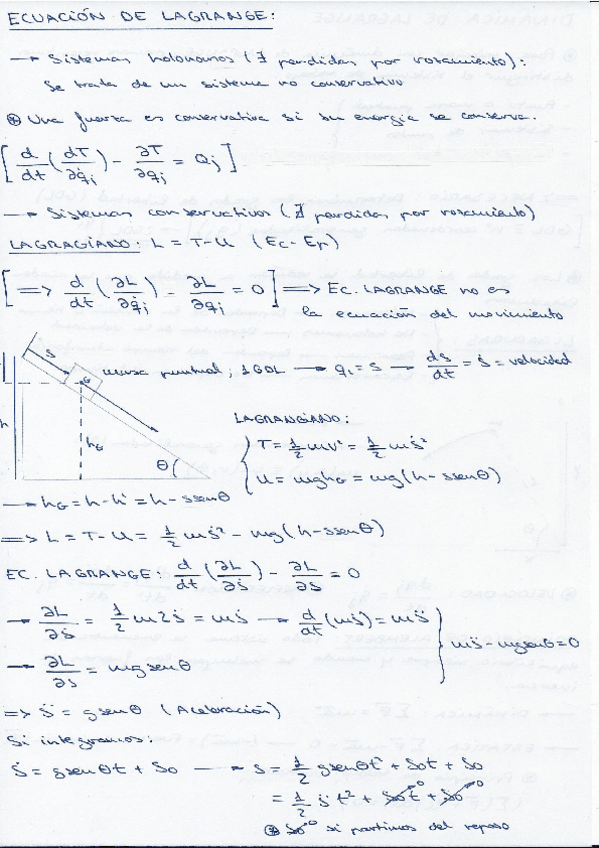 ECUACIÓN DE LAGRANGE:
→ Sistemas holonomos (∃ perdidas por rozamiento):
Se trata de un sistema no conservativo
⊛ Una fuerza es conservativa si su energía se conserva.
[d/dt (dT/∂q̇j) - ∂T/∂qj = Qj]
→ Sistemas conservativos (∄ perdidas por rozamiento)
LAGRAGIANO: L = T-U (Ec-Ep)
[⇒ d/dt (∂L/∂q̇j) - ∂L/∂qj = 0] ⇒ EC. LAGRANGE no es
la ecuación del movimiento
s
G
masa puntual; 1 GDL → q1 = s → ds/dt = ṡ = velocidad
h
hG
θ
LAGRANGIANO:
T = 1/2 mv² = 1/2 mṡ²
U = mghG = mg(h - s senθ)
→ hG = h - h' = h - s senθ
⇒ L = T-U = 1/2 mṡ² - mg(h - s senθ)
EC. LAGRANGE: d/dt (∂L/∂ṡ) - ∂L/∂s = 0
→ ∂L/∂ṡ = 1/2 m2ṡ = mṡ → d/dt (mṡ) = ms̈
→ ∂L/∂s = mg senθ
ms̈ - mg senθ = 0
⇒ s̈ = g senθ (Aceleración)
Si integramos:
ṡ = g senθt + ṡo → s = 1/2 g senθt² + ṡot + so
= 1/2 s̈ t² + ṡot⁰ + so⁰
⊛ ṡo⁰ si partimos del reposo